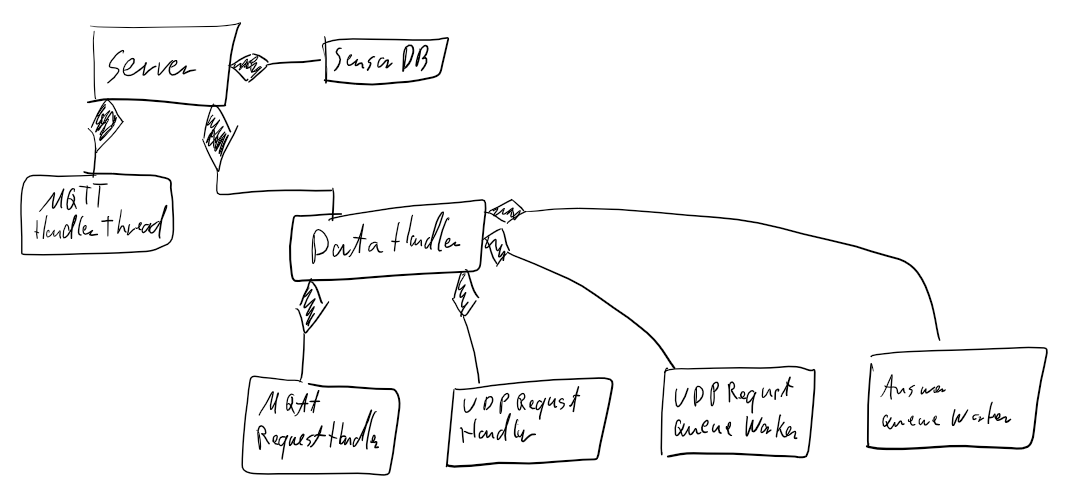 Server
Sensor DB
MQTT
Handler Thread
Data Handler
MQAt
Request Handler
UDP Requst
Handler
UDP Requst
Queue Worker
Answer
Queue Worker